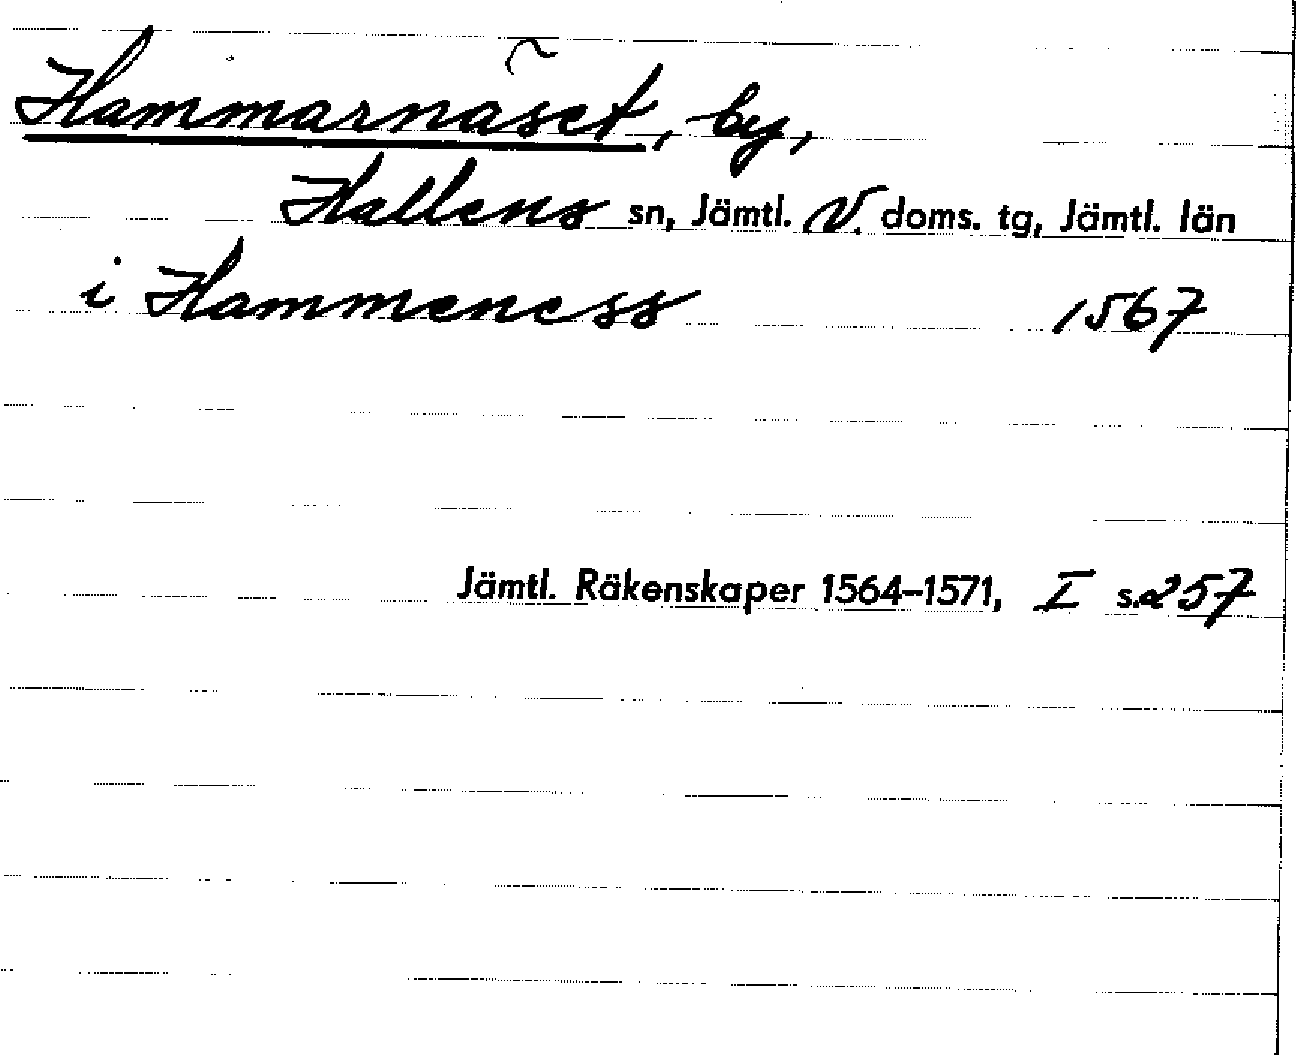 Hammarnäset, by,
Hallens sn, Jämtl. V. doms. tg, Jämtl. län
i Hammeness 1567
Jämtl. Räkenskaper 1564–1571, I s. 257